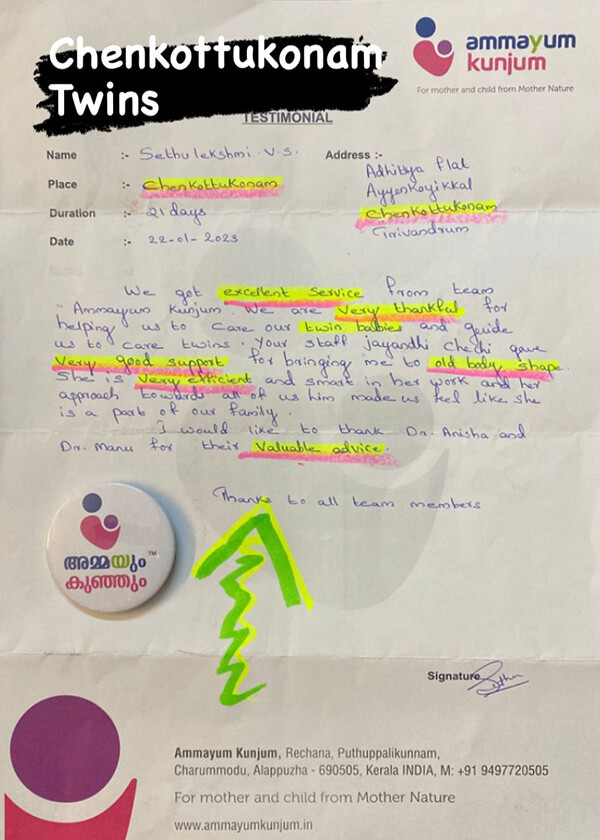 Chenkottukonam
Twins
ammayum
kunjum
For mother and child from Mother Nature
TESTIMONIAL
Name :- Sethulekshmi . V. S.
Address :-
Adhitya flat
Ayyenkoyikkal
Chenkottukonam
Trivandrum
Place :- Chenkottukonam
Duration :- 21 days
Date :- 22-01-2023
We got excellent service from team
"Ammayum Kunjum. We are very thankful for
helping us to care our twin babies and guide
us to care twins. Your staff jayandhi chechi gave
very good support for bringing me to old body shape.
She is very efficient and smart in her work and her
approach towards all of us him made us feel like she
is a part of our family.
I would like to thank Dr. Anisha and
Dr. Manu for their valuable advice.
Thanks to all team members
അമ്മയും™
കുഞ്ഞും
Signature
Ammayum Kunjum, Rechana, Puthuppalikunnam,
Charummodu, Alappuzha - 690505, Kerala INDIA, M: +91 9497720505
For mother and child from Mother Nature
www.ammayumkunjum.in